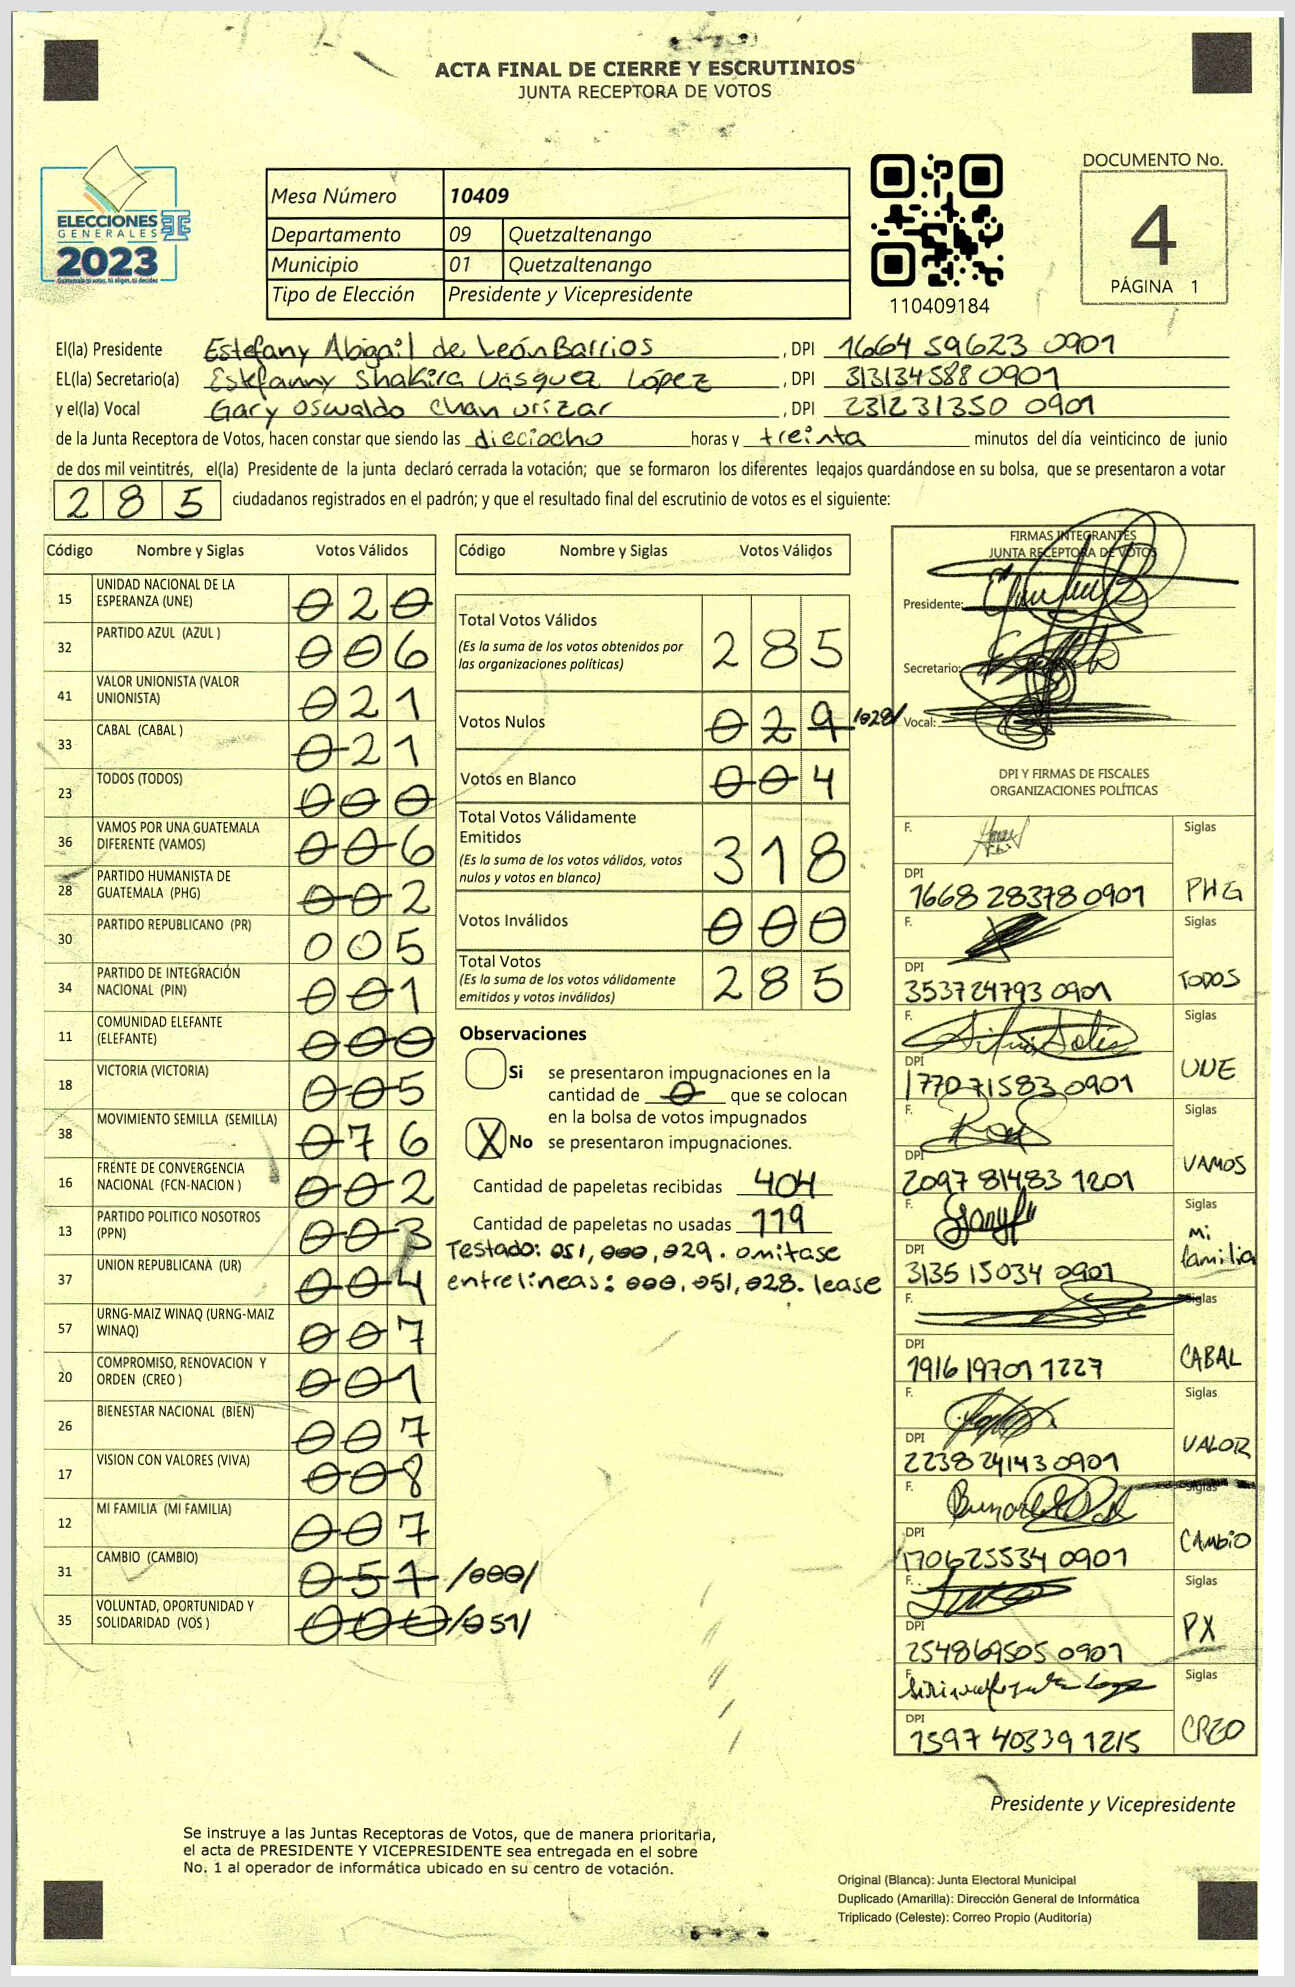 ACTA FINAL DE CIERRE Y ESCRUTINIOS
JUNTA RECEPTORA DE VOTOS
ELECCIONES
GENERALES
2023
Mesa Número 10409
Departamento 09 Quetzaltenango
Municipio 01 Quetzaltenango
Tipo de Elección Presidente y Vicepresidente
110409184
DOCUMENTO No.
4
PÁGINA 1
El(la) Presidente Estefany Abigail de León Barrios , DPI 1664 59623 0901
EL(la) Secretario(a) Estefanny Shakira Vasquez López , DPI 313134588 0901
y el(la) Vocal Gary Oswaldo Chan Urizar , DPI 231231350 0901
de la Junta Receptora de Votos, hacen constar que siendo las dieciocho horas y treinta minutos del día veinticinco de junio
de dos mil veintitrés, el(la) Presidente de la junta declaró cerrada la votación; que se formaron los diferentes legajos guardándose en su bolsa, que se presentaron a votar
285 ciudadanos registrados en el padrón; y que el resultado final del escrutinio de votos es el siguiente:
Código Nombre y Siglas Votos Válidos
15 UNIDAD NACIONAL DE LA ESPERANZA (UNE) 020
32 PARTIDO AZUL (AZUL ) 006
41 VALOR UNIONISTA (VALOR UNIONISTA) 021
33 CABAL (CABAL ) 021
23 TODOS (TODOS) 000
36 VAMOS POR UNA GUATEMALA DIFERENTE (VAMOS) 006
28 PARTIDO HUMANISTA DE GUATEMALA (PHG) 002
30 PARTIDO REPUBLICANO (PR) 005
34 PARTIDO DE INTEGRACIÓN NACIONAL (PIN) 001
11 COMUNIDAD ELEFANTE (ELEFANTE) 000
18 VICTORIA (VICTORIA) 005
38 MOVIMIENTO SEMILLA (SEMILLA) 076
16 FRENTE DE CONVERGENCIA NACIONAL (FCN-NACION ) 002
13 PARTIDO POLITICO NOSOTROS (PPN) 003
37 UNION REPUBLICANA (UR) 004
57 URNG-MAIZ WINAQ (URNG-MAIZ WINAQ) 007
20 COMPROMISO, RENOVACION Y ORDEN (CREO ) 001
26 BIENESTAR NACIONAL (BIEN) 007
17 VISION CON VALORES (VIVA) 008
12 MI FAMILIA (MI FAMILIA) 007
31 CAMBIO (CAMBIO) 051 /000/
35 VOLUNTAD, OPORTUNIDAD Y SOLIDARIDAD (VOS ) 000 /051/
Código Nombre y Siglas Votos Válidos
Total Votos Válidos 285
(Es la suma de los votos obtenidos por
las organizaciones políticas)
Votos Nulos 029 /028/
Votos en Blanco 004
Total Votos Válidamente
Emitidos 318
(Es la suma de los votos válidos, votos
nulos y votos en blanco)
Votos Inválidos 000
Total Votos 285
(Es la suma de los votos válidamente
emitidos y votos inválidos)
Observaciones
Si se presentaron impugnaciones en la
cantidad de 0 que se colocan
en la bolsa de votos impugnados
X No se presentaron impugnaciones.
Cantidad de papeletas recibidas 404
Cantidad de papeletas no usadas 119
Testado: 051, 000, 029. omitase
entrelineas: 000, 051, 028. lease
FIRMAS INTEGRANTES
JUNTA RECEPTORA DE VOTOS
Presidente:
Secretario:
Vocal:
DPI Y FIRMAS DE FISCALES
ORGANIZACIONES POLÍTICAS
F. Siglas
DPI 1668 28378 0901 PHG
F. Siglas
DPI 353724793 0901 TODOS
F. Siglas
DPI 177071583 0901 UNE
F. Siglas
DPI 2097 81483 1201 VAMOS
F. Siglas
DPI 3135 15034 0901 Mi familia
F. Siglas
DPI 1916 19701 1227 CABAL
F. Siglas
DPI 2238 24143 0901 VALOR
F. Siglas
DPI 170625534 0901 CAMBIO
F. Siglas
DPI 254869505 0901 PX
F. Siglas
DPI 1597 40339 1215 CREO
Presidente y Vicepresidente
Se instruye a las Juntas Receptoras de Votos, que de manera prioritaria,
el acta de PRESIDENTE Y VICEPRESIDENTE sea entregada en el sobre
No. 1 al operador de informática ubicado en su centro de votación.
Original (Blanca): Junta Electoral Municipal
Duplicado (Amarilla): Dirección General de Informática
Triplicado (Celeste): Correo Propio (Auditoría)